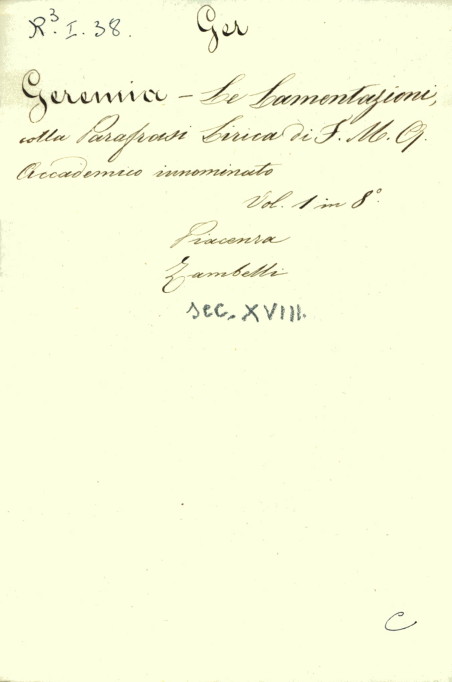 R.³ I. 38.
Ger
Geremia – Le Lamentazioni,
colla Parafrasi Lirica di F. M. G.
Accademico innominato
Vol. 1 in 8°.
Piacenza
Zambelli
sec. XVIII.
C